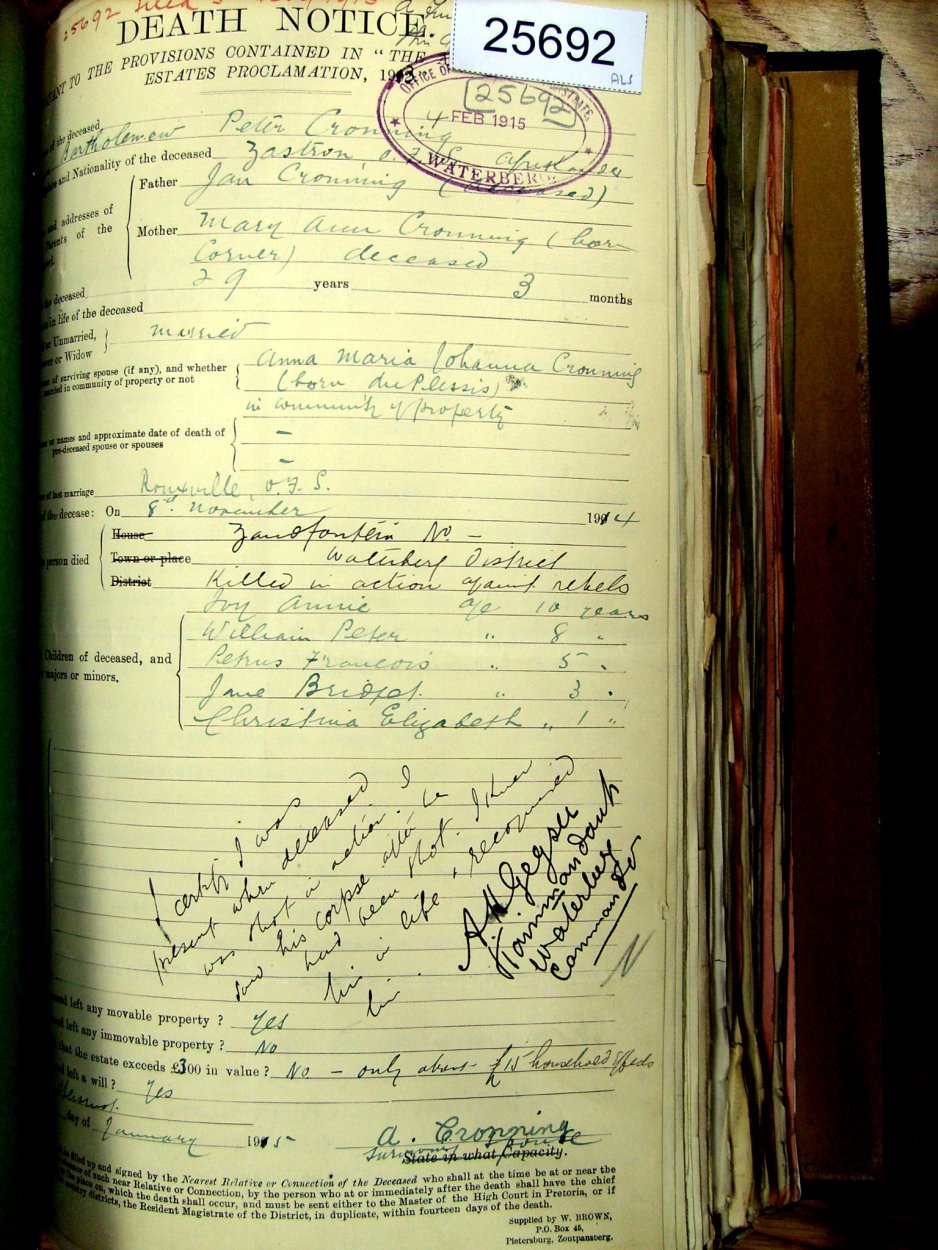 25692 filed
DEATH NOTICE.
25692
TO THE PROVISIONS CONTAINED IN "THE
ESTATES PROCLAMATION, 19
OFFICE OF
25692
4 FEB 1915
WATERBERG
of the deceased Bartholemew Peter Cronning
and Nationality of the deceased Zastron, O.F.S.
and addresses of
Parents of the
Father Jan Cronning (deceased)
Mother Mary Ann Cronning (born
Corner) deceased
the deceased 29 years 3 months
in life of the deceased
or Unmarried,
or Widow
married
of surviving spouse (if any), and whether
married in community of property or not
Anna Maria Johanna Cronning
(born du Plessis)
in community of property
or names and approximate date of death of
pre-deceased spouse or spouses
-
-
of last marriage Rouxville, O.F.S.
of the decease: On 8th November 1914
person died
House Zandfontein No. -
Town or place Waterberg District
District Killed in action against rebels
Children of deceased, and
majors or minors.
Ivy Annie age 10 years
William Peter " 8 "
Petrus Francois " 5 "
Jane Bridget " 3 "
Christina Elizabeth " 1 "
I certify I was
present when deceased
was shot in action. I
saw his corpse after he
had been shot. I knew
him in life & recognised
him.
A H Geyser
Kommandant
Waterberg
Commando
N
left any movable property ? Yes
left any immovable property ? No
that the estate exceeds £300 in value ? No - only about £15 household effects
left a will ? Yes
day of January 1915
A. Cronning
Surviving spouse
State in what Capacity.
filled up and signed by the Nearest Relative or Connection of the Deceased who shall at the time be at or near the
of such near Relative or Connection, by the person who at or immediately after the death shall have the chief
the place on, which the death shall occur, and must be sent either to the Master of the High Court in Pretoria, or if
country districts, the Resident Magistrate of the District, in duplicate, within fourteen days of the death.
Supplied by W. BROWN,
P.O. Box 45,
Pietersburg, Zoutpansberg.